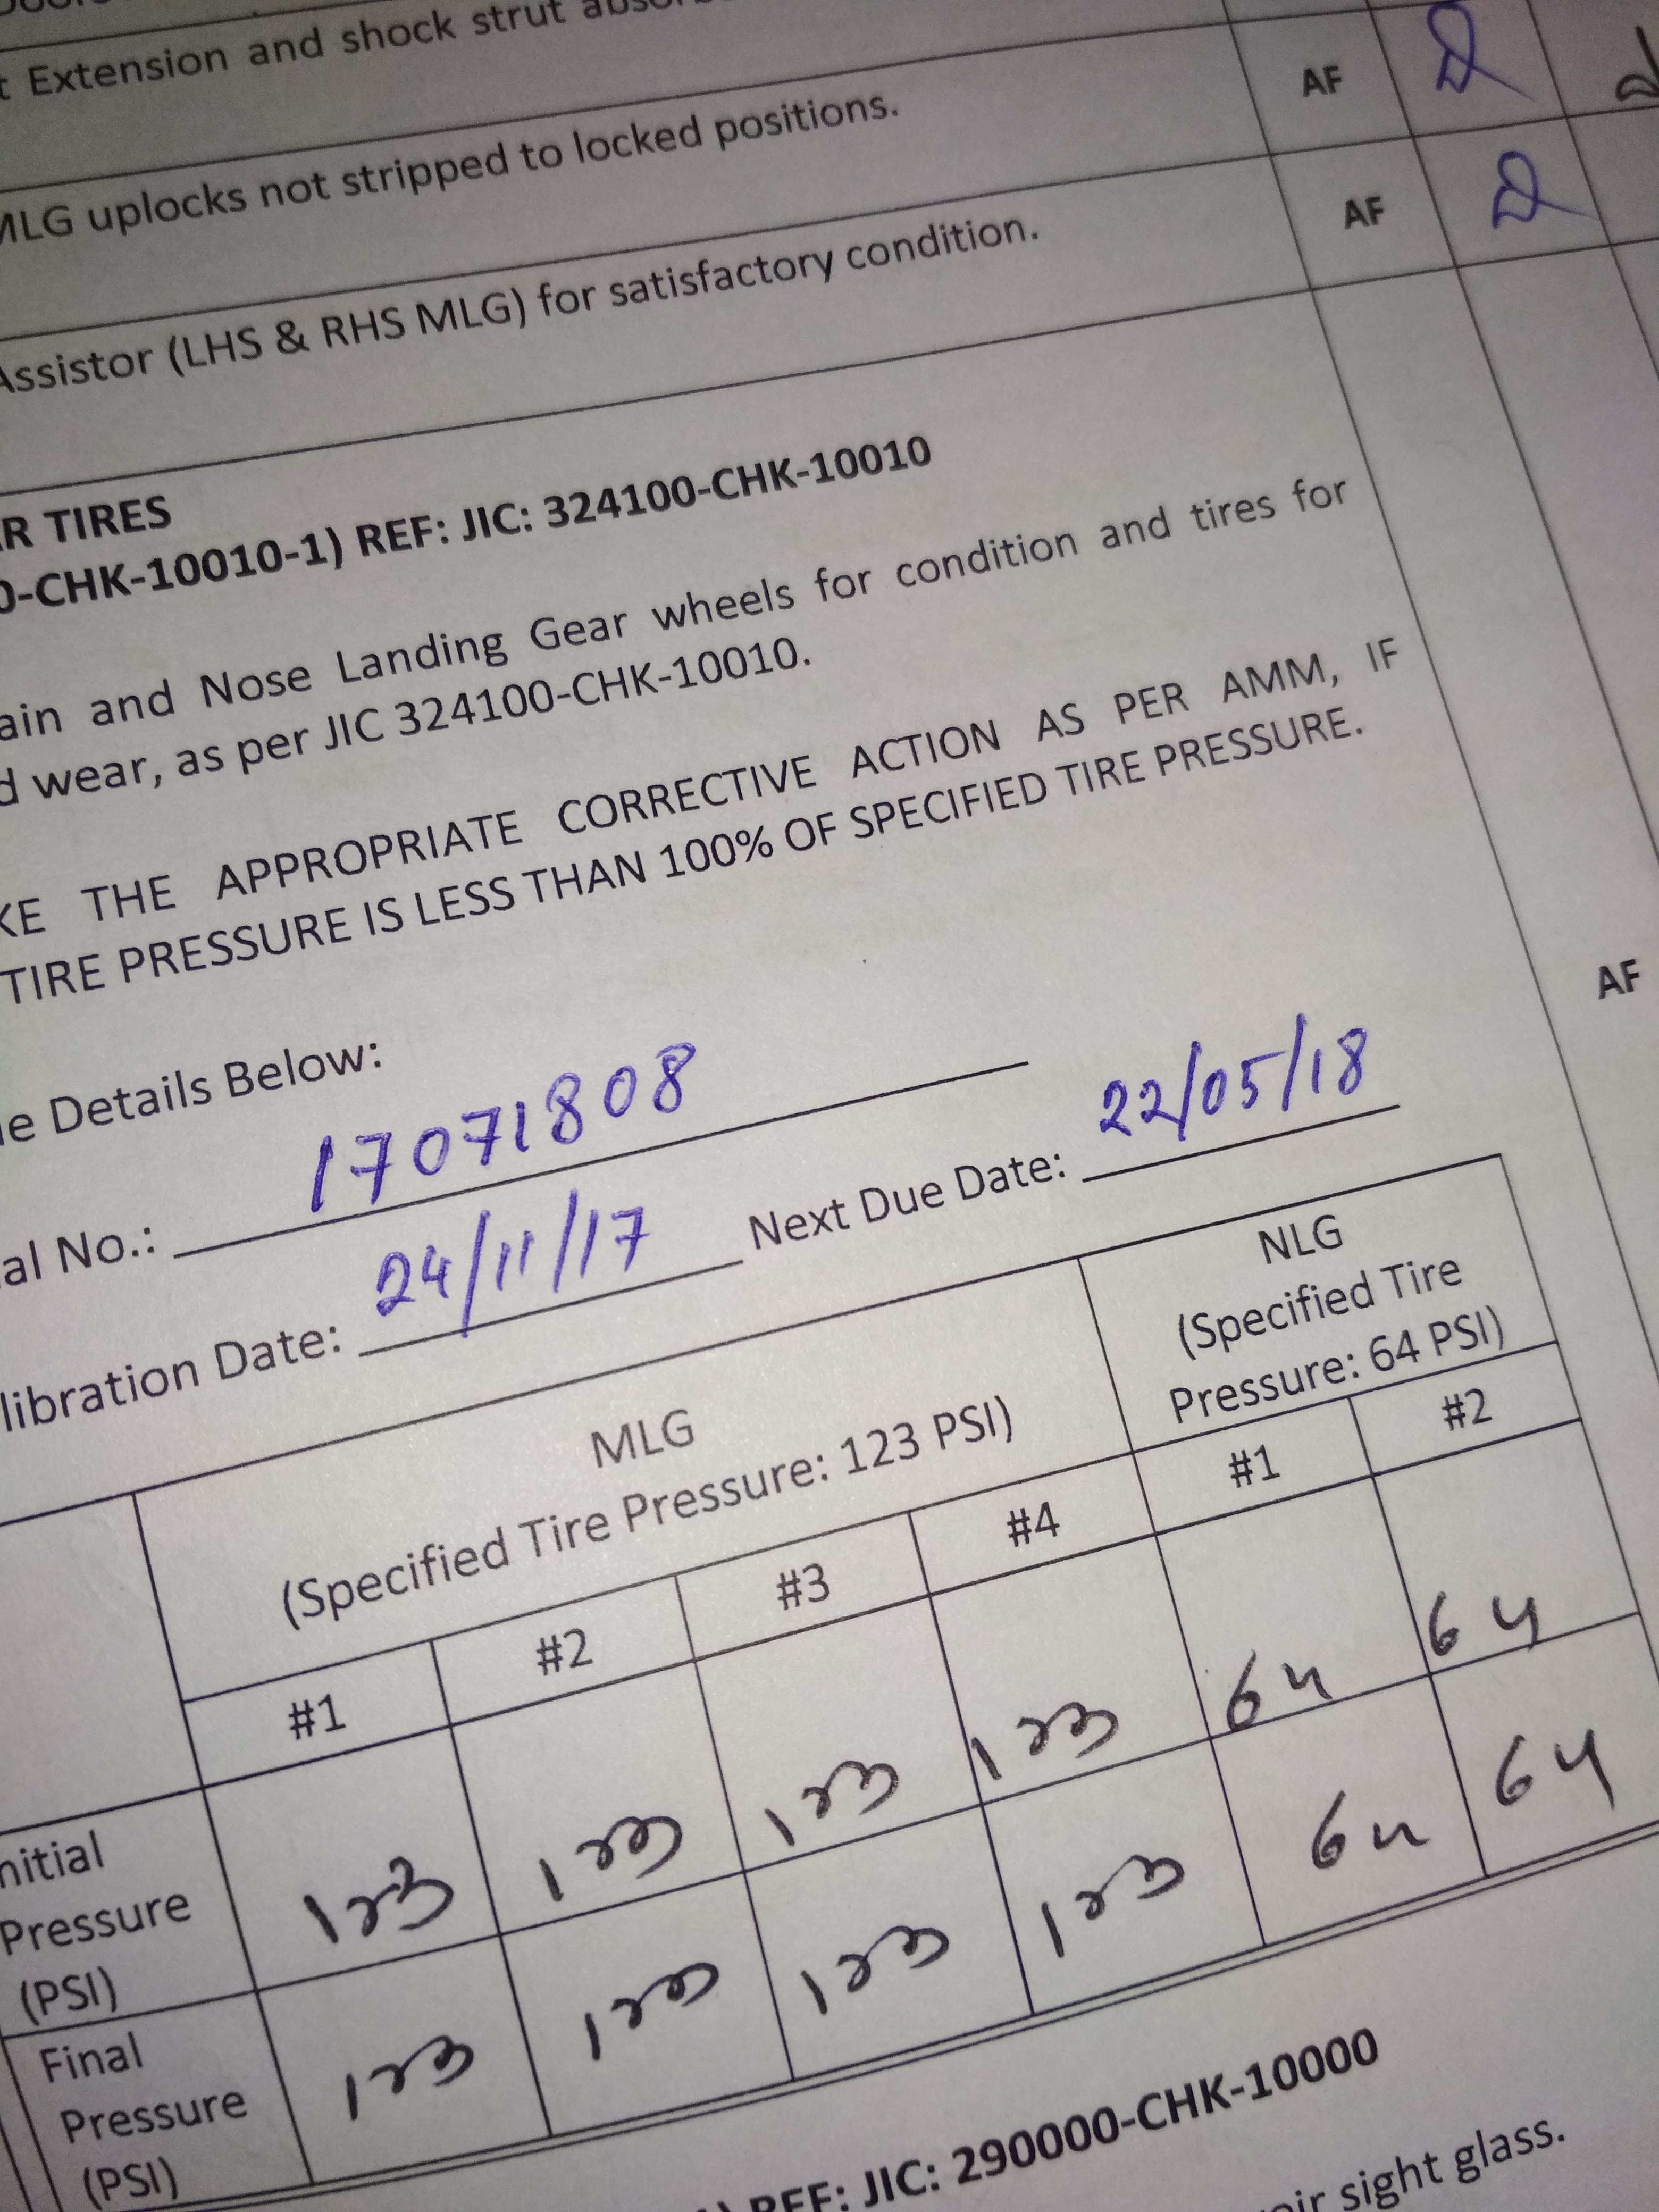 t Extension and shock strut
AF
MLG uplocks not stripped to locked positions.
AF
Assistor (LHS & RHS MLG) for satisfactory condition.
R TIRES
0-CHK-10010-1) REF: JIC: 324100-CHK-10010
ain and Nose Landing Gear wheels for condition and tires for
d wear, as per JIC 324100-CHK-10010.
KE THE APPROPRIATE CORRECTIVE ACTION AS PER AMM, IF
TIRE PRESSURE IS LESS THAN 100% OF SPECIFIED TIRE PRESSURE.
AF
e Details Below:
al No.: 17071808
libration Date: 24/11/17 Next Due Date: 22/05/18
MLG
(Specified Tire Pressure: 123 PSI)
NLG
(Specified Tire
Pressure: 64 PSI)
#1 #2 #3 #4 #1 #2
nitial
Pressure
(PSI)
123 123 123 123 64 64
Final
Pressure
(PSI)
123 123 123 123 64 64
REF: JIC: 290000-CHK-10000
oir sight glass.